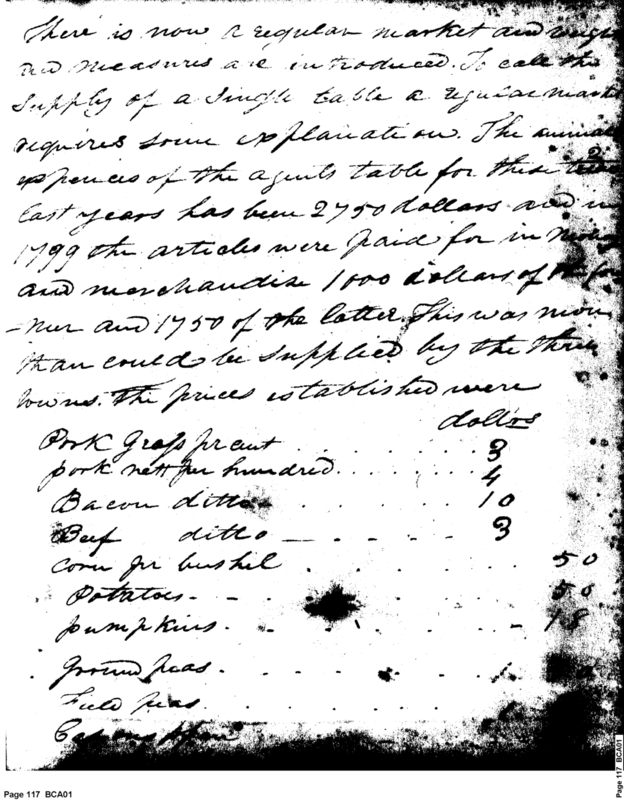 There is now a regular market and weigh
and measures are introduced. To call the
supply of a single table a regular mark
requires some explanation. The annual
expences of the agents table for these
last years has been 2750 dollars and in
1799 the articles were paid for in money
and merchandise 1000 dollars of the for
-mer and 1750 of the latter. This was more
than could be supplied by the three
towns. The prices established were
dollrs
Pork Gross pr cent . . . . . . . 3
pork nett per hundred . . . . . . 4
Bacon ditto . . . . . . 10
Beef ditto — . . . — 3
corn pr bushel . . . . . . 50
Potatoes - - . . . 50
pumpkins. - . . . - 18
Ground peas. . . . 1
Field peas . . . . .
Page 117 BCA01
Page 117 BCA01